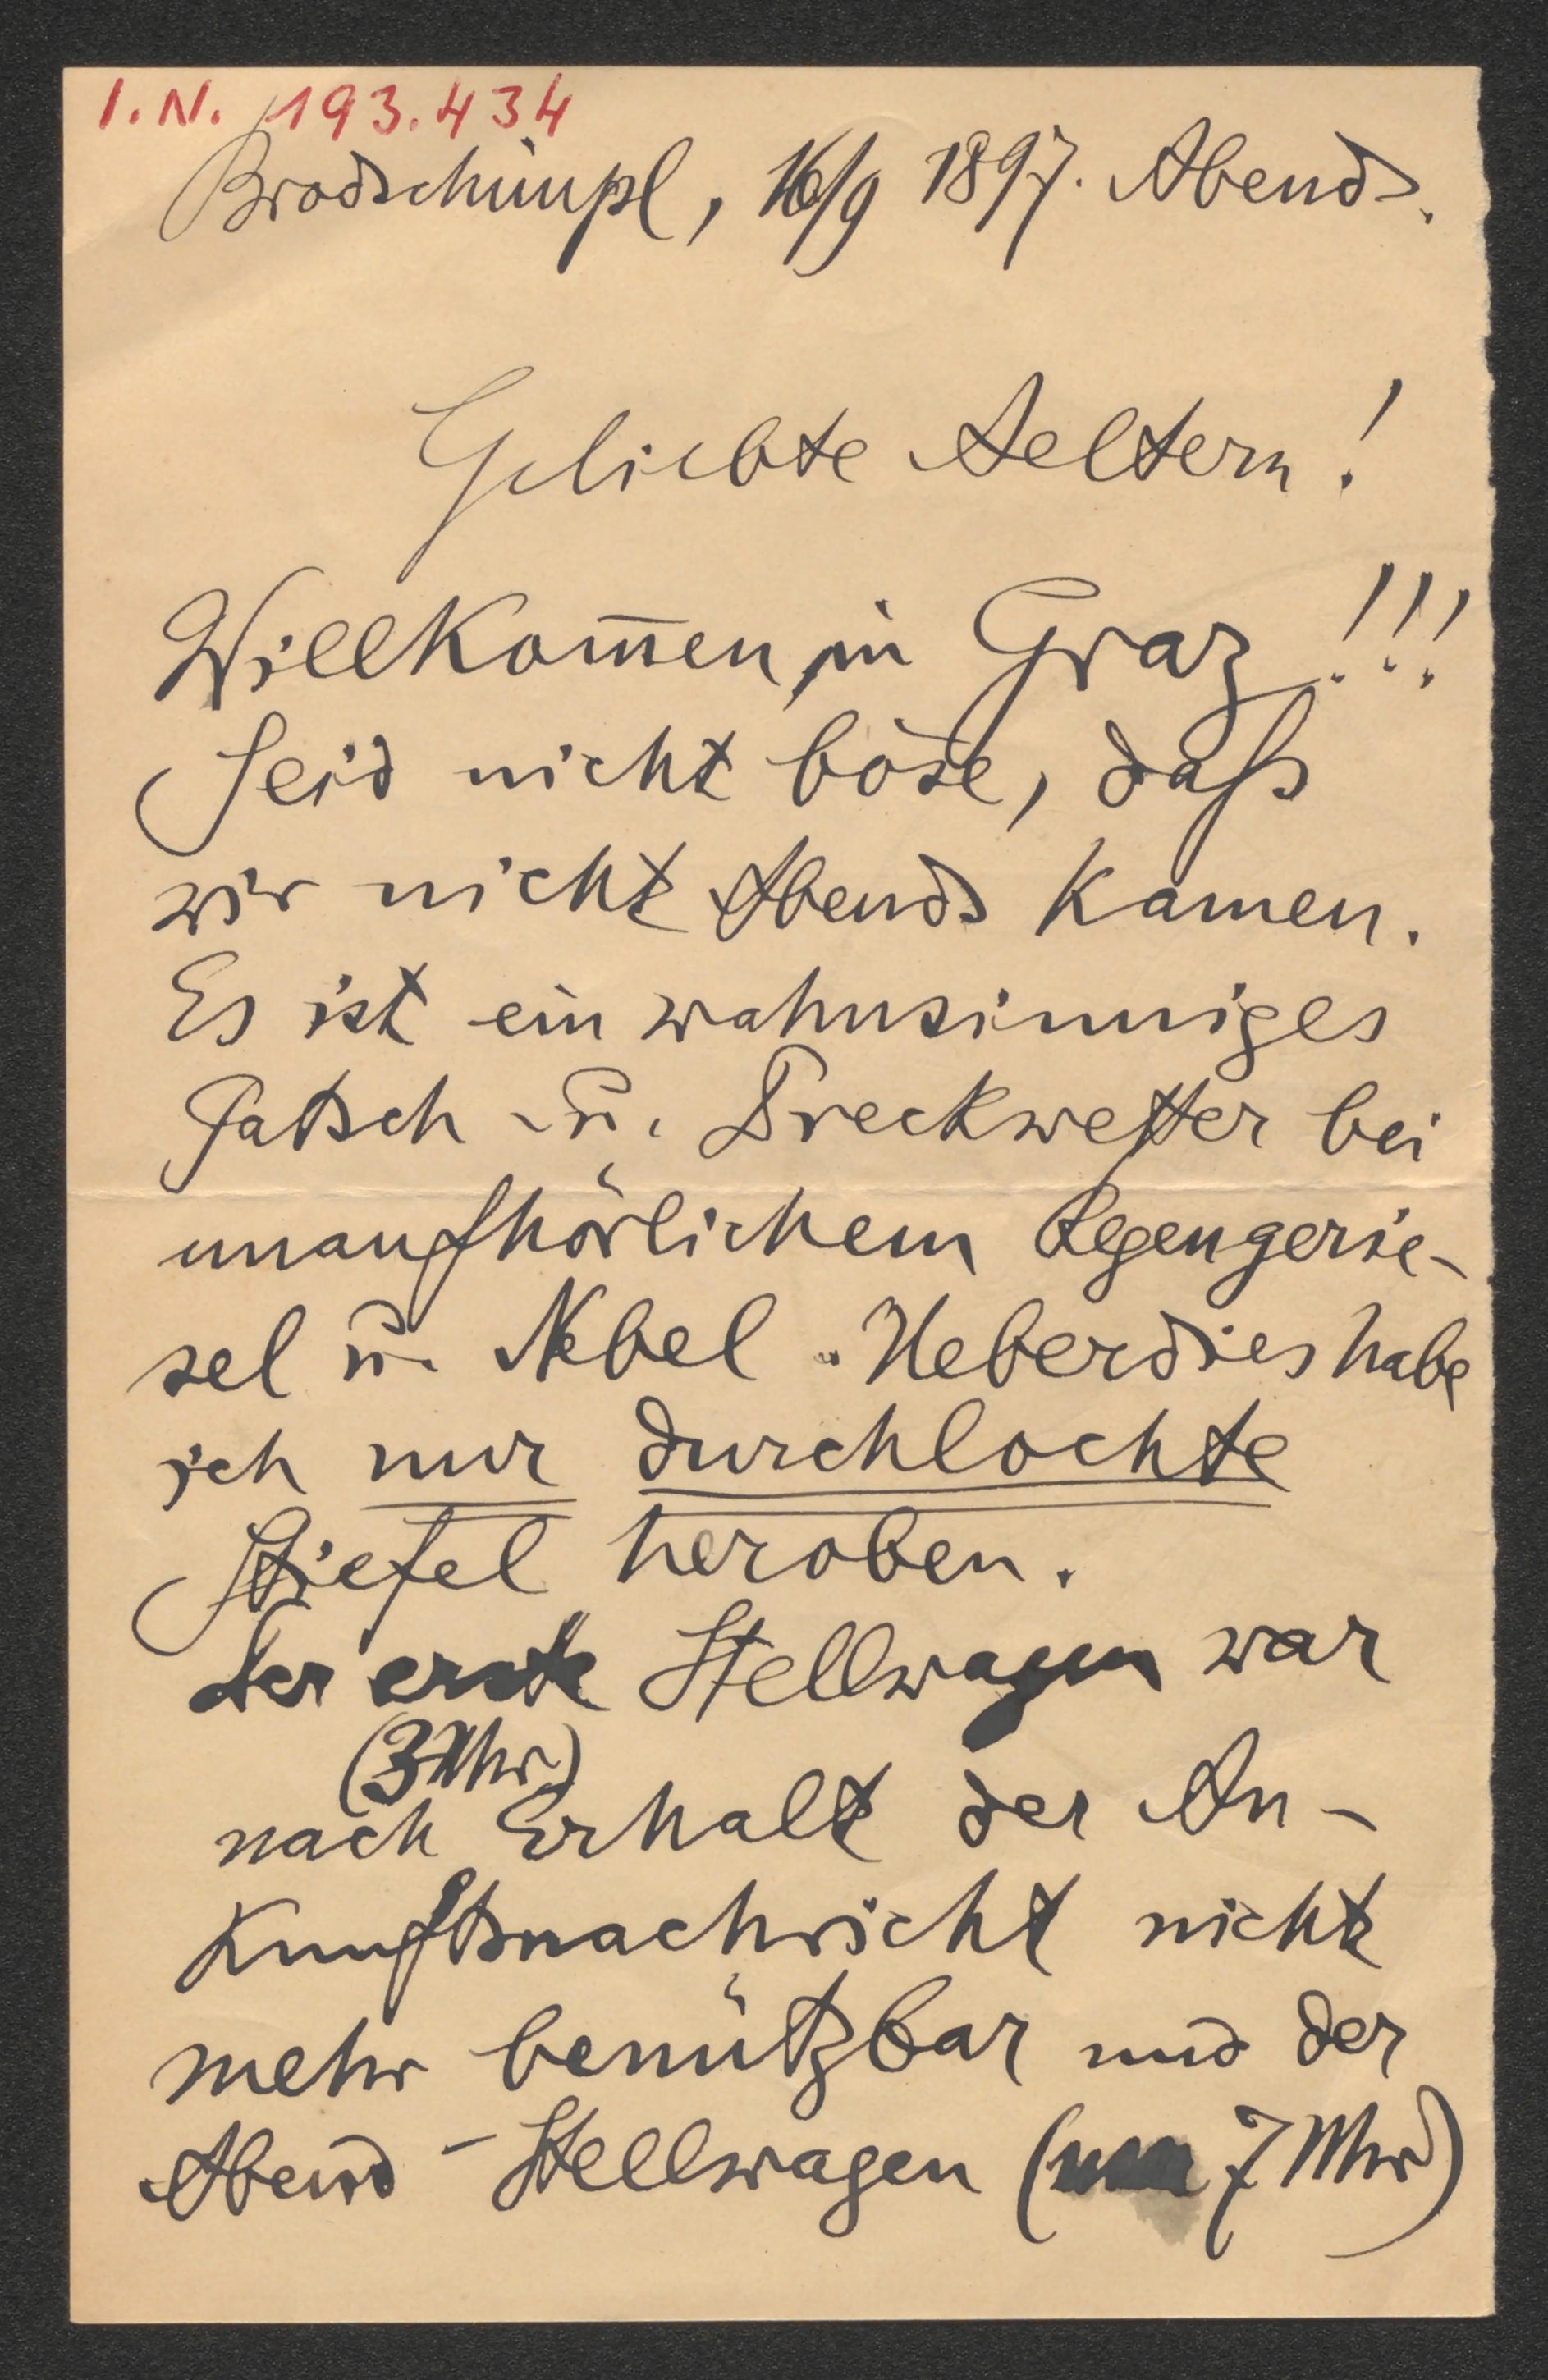 I.N. 193.434
Brodschimpl, 16/9 1897. Abends.
Geliebte Aeltern!
Willkom̅en in Graz!!!
Seid nicht böse, daß
wir nicht Abends kamen.
Es ist ein wahnsinniges
Patsch- u. Dreckwetter bei
unaufhörlichem Regengerie-
sel u. Nebel. Ueberdies habe
ich nur durchlochte
Stiefel heroben.
Der erste Stellwagen war
(3 Uhr)
nach Erhalt der An-
kunftsnachricht nicht
mehr benützbar und der
Abend-Stellwagen (um 7 Uhr)